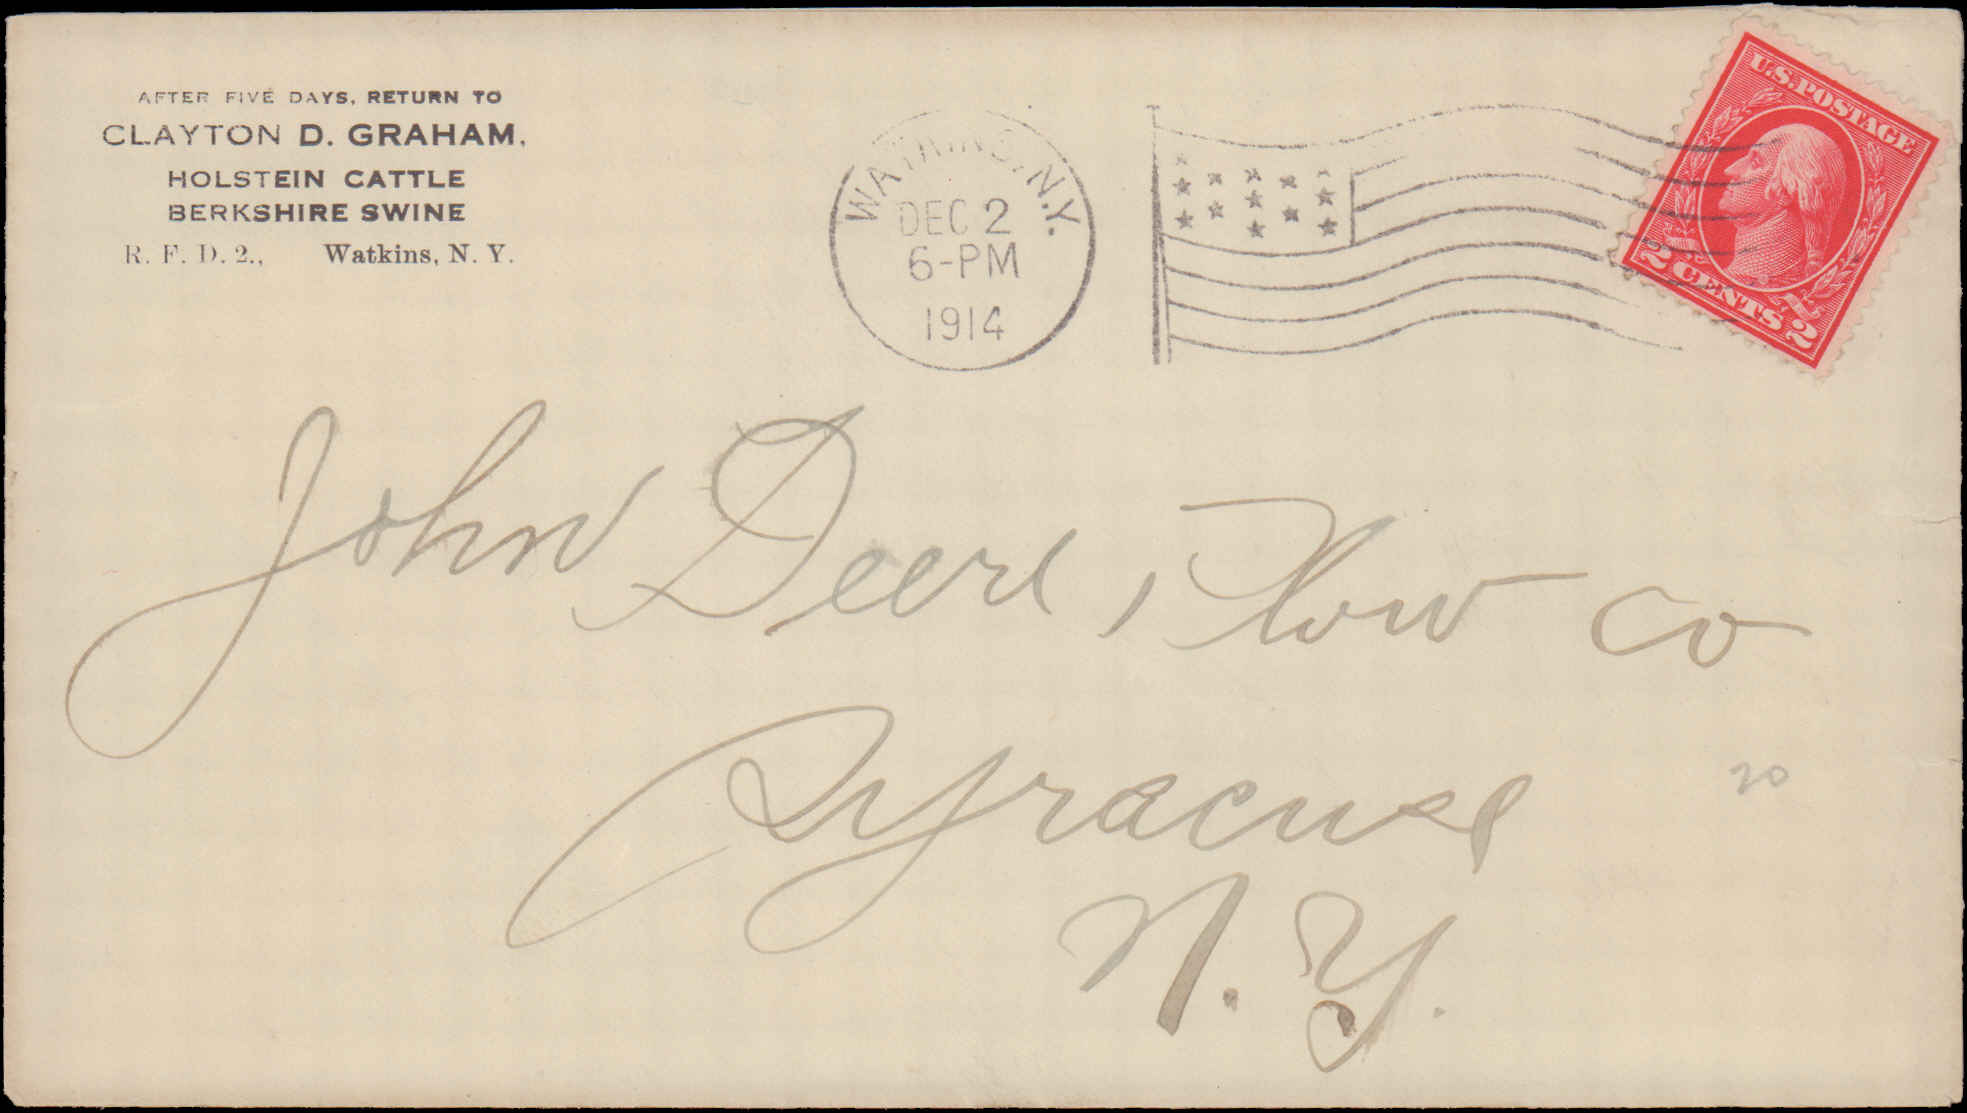 AFTER FIVE DAYS, RETURN TO
CLAYTON D. GRAHAM,
HOLSTEIN CATTLE
BERKSHIRE SWINE
R. F. D. 2., Watkins, N. Y.
WATKINS, N.Y.
DEC 2
6-PM
1914
U.S. POSTAGE
2 CENTS 2
John Deere, Plow Co
Syracuse
20
N. Y.